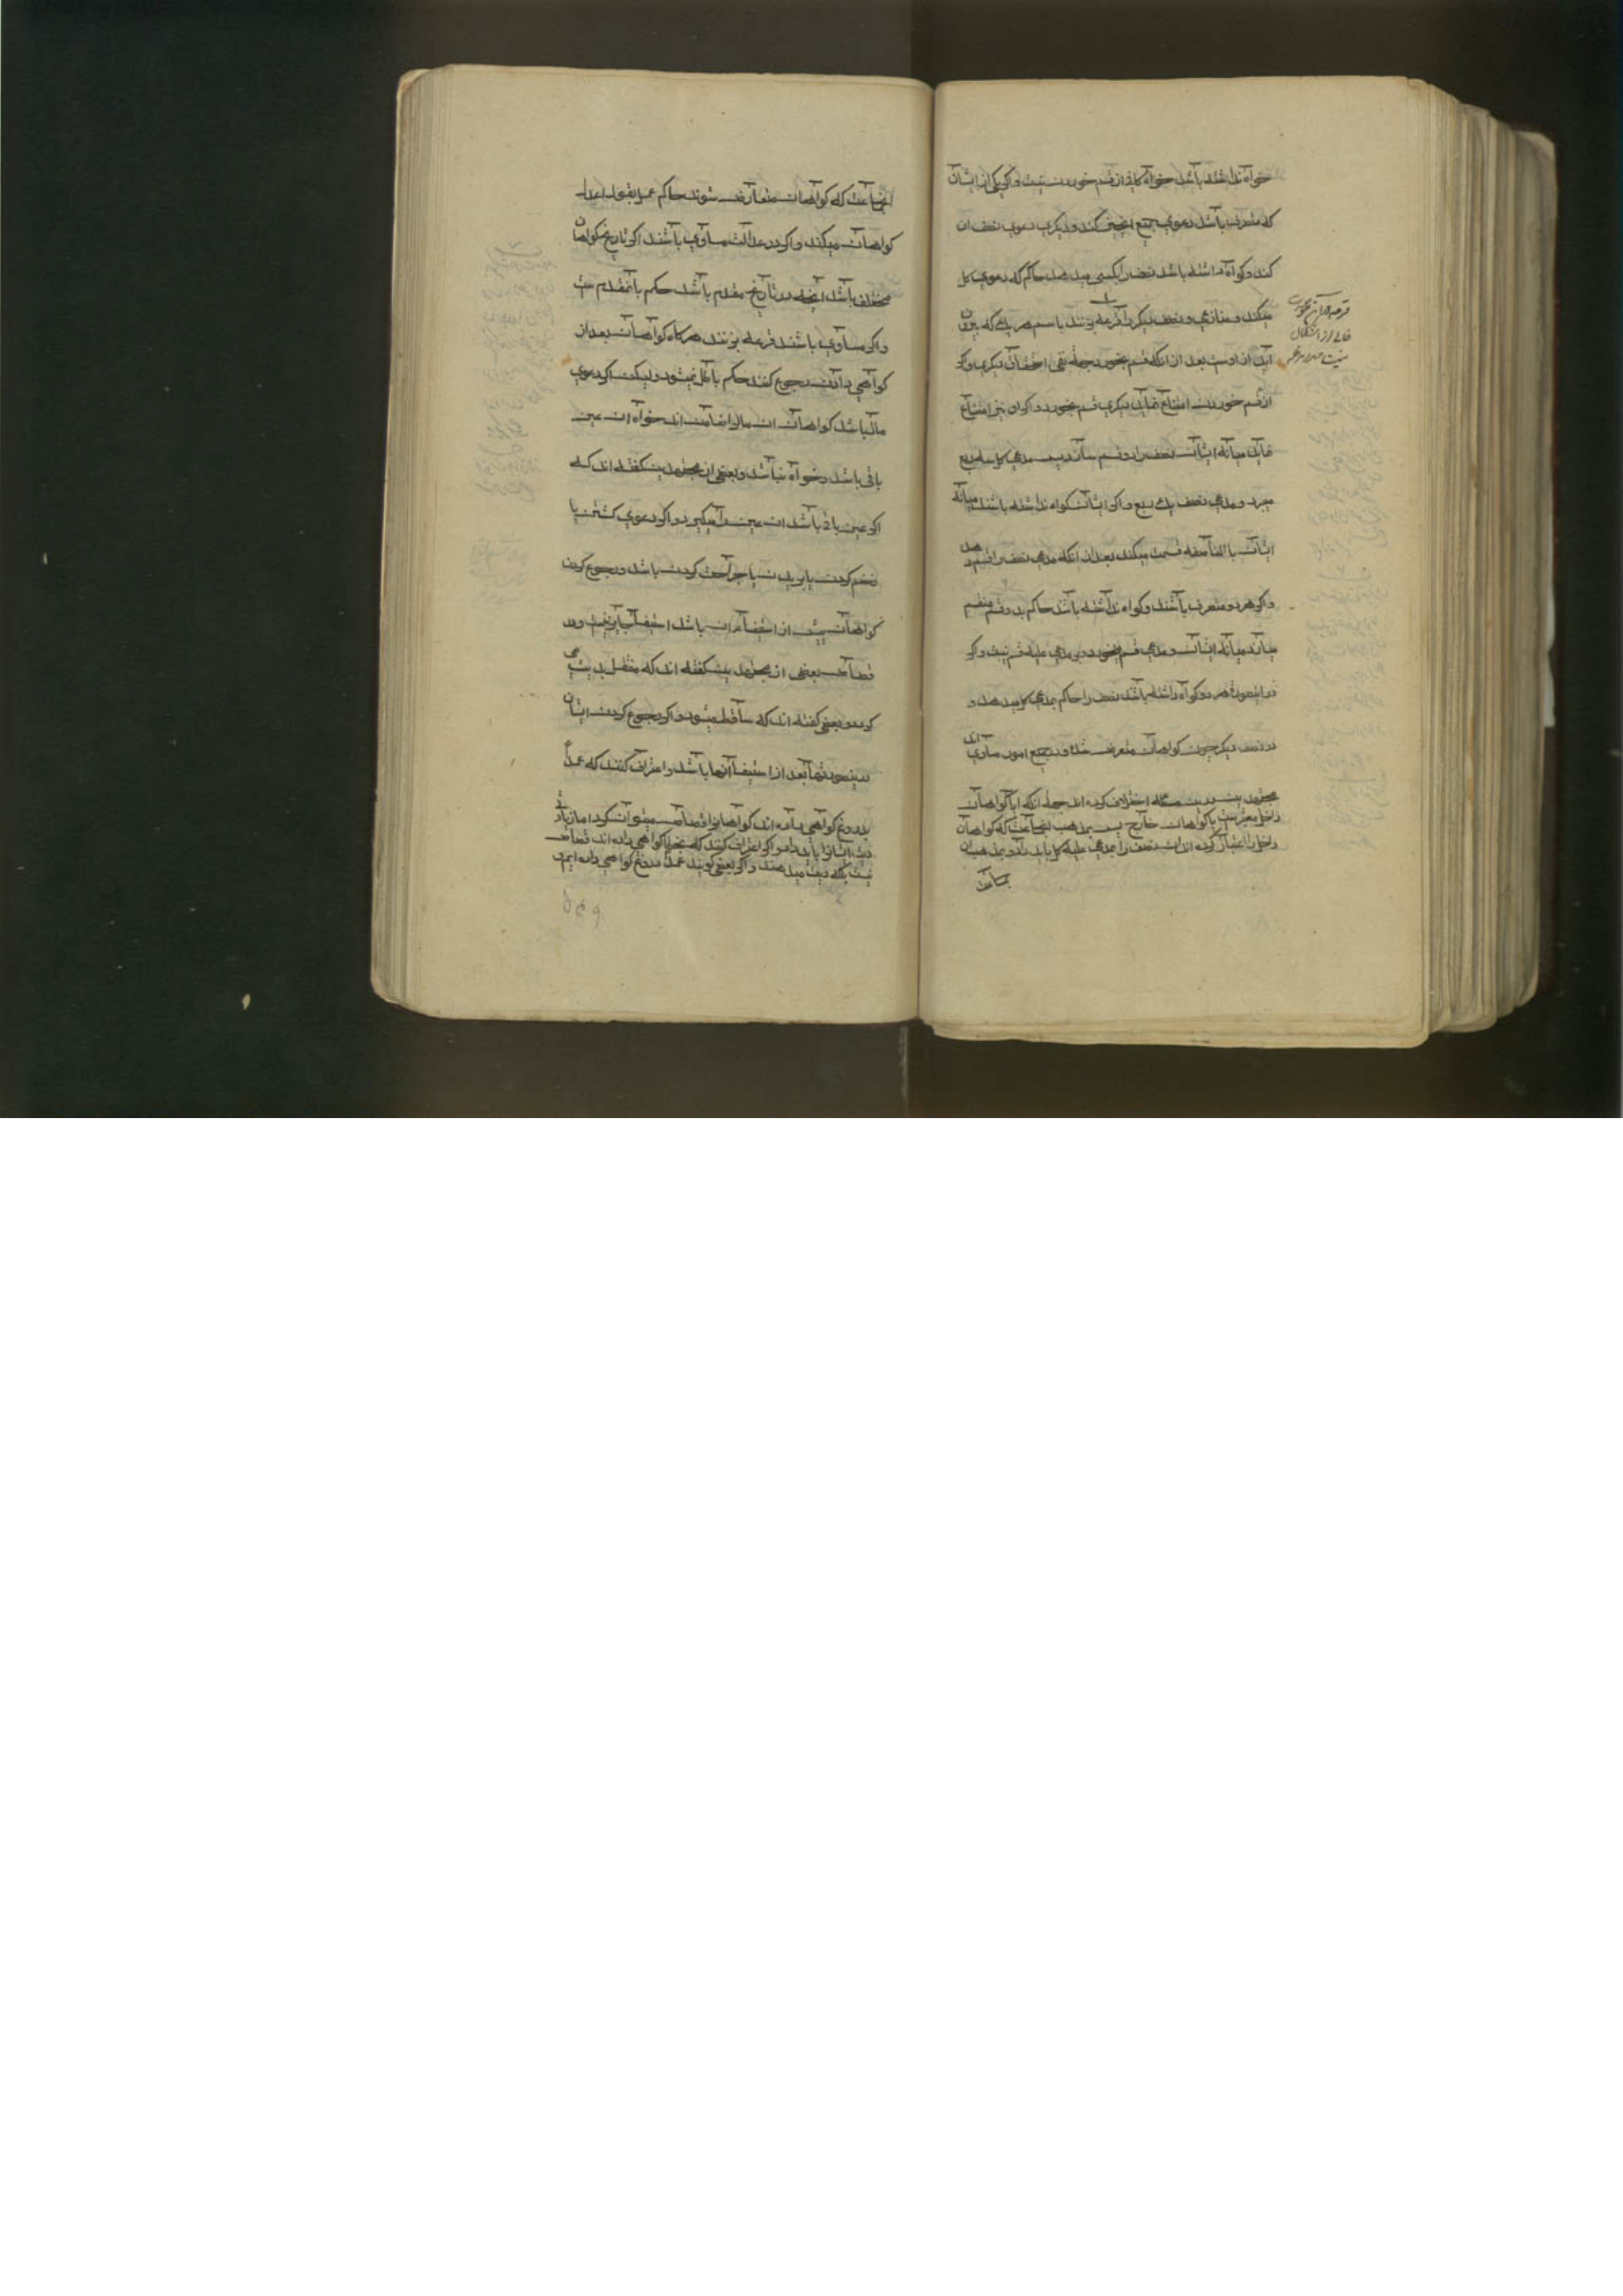 خواه نداشته باشد خواه کافر از قسم خوردن نیست و اگر یکی از ایشان
که متصرف باشد دعوی جمیع انچیز کند و دیگری دعوی نصف ان
کند و گواه نداشته باشد نصف را بکسی میدهد حاکم که دعوی کل
میکند و منازعی و نصف دیگر را قرعه بزنند باسم هر یک که بیرون
اید از اوست بعد از انکه قسم بخورد جهة نفی استحقاق دیگری و اگر
از قسم خوردن امتناع نماید دیگری قسم بخورد و اگر او نیز امتناع
نماید میانه ایشان نصف را دو قسم سازد پس مدعی کل سه ربع
میبرد و مدعی نصف یک ربع و اگر ایشان گواه نداشته باشند میانه
ایشان بالمناصفه قسمت میکند بعد از انکه مدعی نصف را قسم دهد
و اگر هر دو متصرف باشند و گواه نداشته باشند حاکم بدو قسم منقسم
سازد میانه ایشان و مدعی قسم بخورد و بر مدعی علیه قسم نیست و اگر
در اینصورة هر دو گواه داشته باشند نصف را حاکم بمدعی کل میدهد و
در نصف دیگر چون گواهان متعرض شده و در جمیع امور مساوی اند
مجتهدین در این مسئله اختلاف کرده اند جهة انکه ایا گواهان
داخل معتبرست یا گواهان خارج پس بمذهب انجماعت که گواهان
داخل را اعتبار کرده اند ان نصف را بمدعی علیه کل باید داد و بمذهب ان
جماعت
خالی از اشکال
نیست
انجماعت که گواهان متعارض شوند حاکم عمل بقول اعدل
گواهان میکند و اگر در عدالت مساوی باشند اگر تاریخ گواهان
مختلف باشد انچه در تاریخ مقدم باشد حکم بانمقدم ست
و اگر مساوی باشند قرعه بزنند هرگاه گواهان بعد از
گواهی دادن رجوع کنند حکم باطل نمیشود ولیکن اگر دعوی
مال باشد گواهان ان مال را ضامن اند خواه ان عین
باقی باشد و خواه نباشد و بعضی از مجتهدین گفته اند که
اگر عین باقی باشد ان عین را میگیرد و اگر دعوی کشتن یا
زخم کردن یا بریدن یا جراحت کردن باشد و رجوع کردن
گواهان پیش از استیفاء ان باشد استیفا جایز نیست و در
قصاص بعضی از مجتهدین گفته اند که منتقل بدیت می
گردد و بعضی گفته اند که ساقط میشود و اگر رجوع کردن ایشان
در اینصورتها بعد از استیفا انها باشد و اعتراف کنند که عمدا
بدروغ گواهی داده اند گواهان را قصاص میتوان کرد اما زیادتی
دیت ایشان را باید داد و اگر اعتراف کنند که بخطا گواهی داده اند قصاص
نیست بلکه دیت میدهند و اگر بعضی گویند عمدا دروغ گواهی داده ایم و